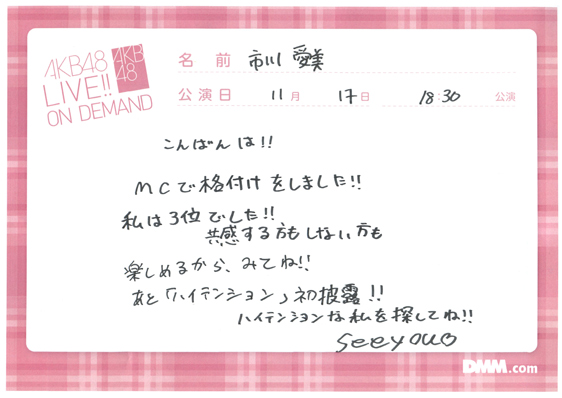 AKB48
LIVE!!
ON DEMAND
AKB
48
名前 市川 愛美
公演日 11月 17日 18:30 公演
こんばんは!!
MCで格付けをしました!!
私は3位でした!!
共感する方もしない方も
楽しめるから、みてね!!
あと「ハイテンション」初披露!!
ハイテンションな私を探してね!!
seeyou
DMM.com